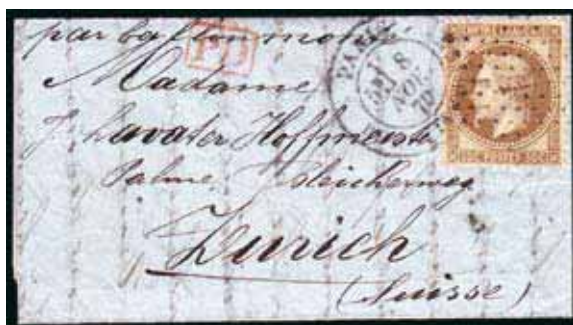 par ballon monté
PD
PARIS
8
NOV
70
Madame
J. Lavater Hoffmeister
Palme, Bleicherweg
Zurich
(Suisse)